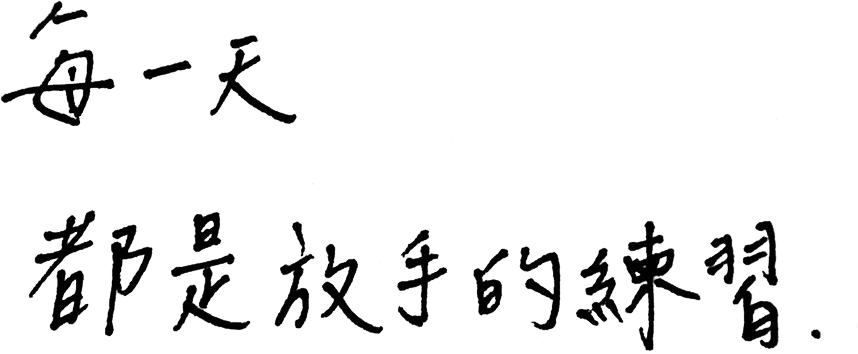 每一天
都是放手的練習.